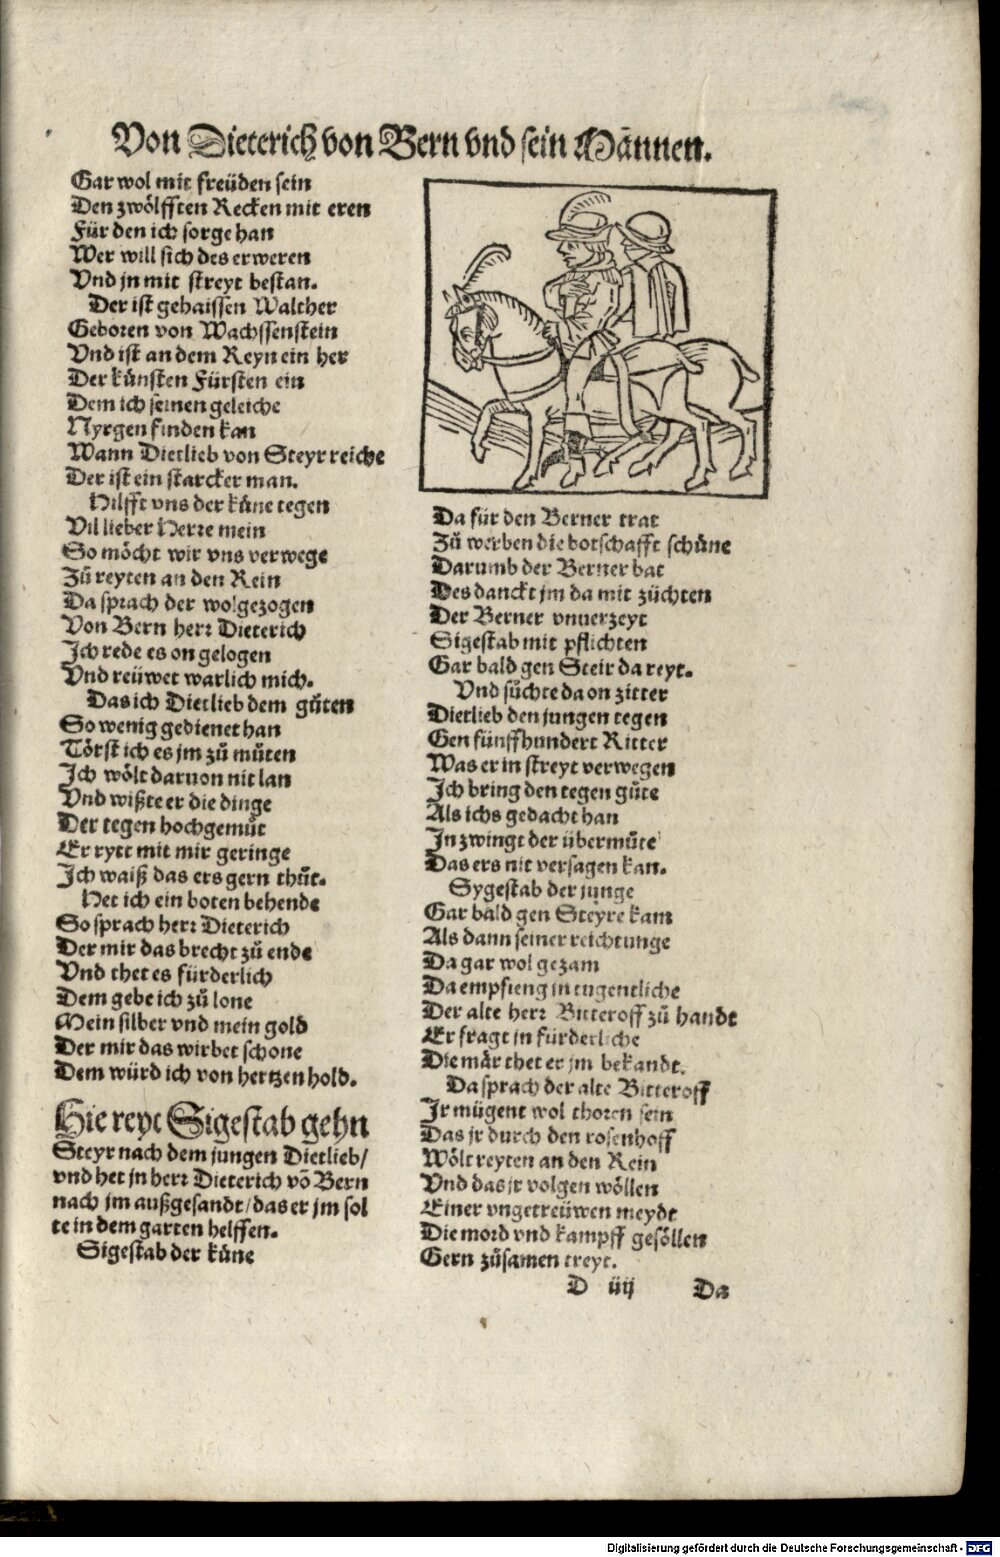 Von Dieterich von Bern vnd sein Männen.
Gar wol mit freüden sein
Den zwölfften Recken mit eren
Für den ich sorge han
Wer will sich des erweren
Vnd jn mit streyt bestan.
Der ist gehaissen Walther
Geboren von Wachssenstein
Vnd ist an dem Reyn ein her
Der künsten Fürsten ein
Dem ich seinen geleiche
Nyrgen finden kan
Wann Dietlieb von Steyr reiche
Der ist ein starcker man.
Hilfft vns der küne tegen
Vil lieber Herre mein
So möcht wir vns verwege
Zů reyten an den Rein
Da sprach der wolgezogen
Von Bern herr Dieterich
Ich rede es on gelogen
Vnd reüwet warlich mich.
Das ich Dietlieb dem gůten
So wenig gedienet han
Törst ich es jm zů můten
Ich wölt daruon nit lan
Vnd wißte er die dinge
Der tegen hochgemůt
Er rytt mit mir geringe
Ich waiß das ers gern thůt.
Het ich ein boten behende
So sprach herr Dieterich
Der mir das brecht zů ende
Vnd thet es fürderlich
Dem gebe ich zů lone
Mein silber vnd mein gold
Der mir das wirbet schone
Dem würd ich von hertzen hold.
Hie reyt Sigestab gehn
Steyr nach dem jungen Dietlieb/
vnd het jn herr Dieterich võ Bern
nach jm außgesandt/das er jm sol
te in dem garten helffen.
Sigestab der küne
Da für den Berner trat
Zů werben die botschafft schüne
Darumb der Berner bat
Des danckt jm da mit züchten
Der Berner vnuerzeyt
Sigestab mit pflichten
Gar bald gen Steir da reyt.
Vnd sůchte da on zitter
Dietlieb den jungen tegen
Gen fünffhundert Ritter
Was er in streyt verwegen
Ich bring den tegen gůte
Als ichs gedacht han
In zwingt der übermůte
Das ers nit versagen kan.
Sygestab der junge
Gar bald gen Steyre kam
Als dann seiner reichtunge
Da gar wol gezam
Da empfieng in tugentliche
Der alte herr Bitteroff zů handt
Er fragt in fürderliche
Die mär thet er jm bekandt.
Da sprach der alte Bitteroff
Ir mügent wol thoren sein
Das jr durch den rosenhoff
Wölt reyten an den Rein
Vnd das jr volgen wöllen
Einer vngetreüwen meydt
Die mord vnd kampff gesöllen
Gern zůsamen treyt.
D iiij Da
Digitalisierung gefördert durch die Deutsche Forschungsgemeinschaft - DFG